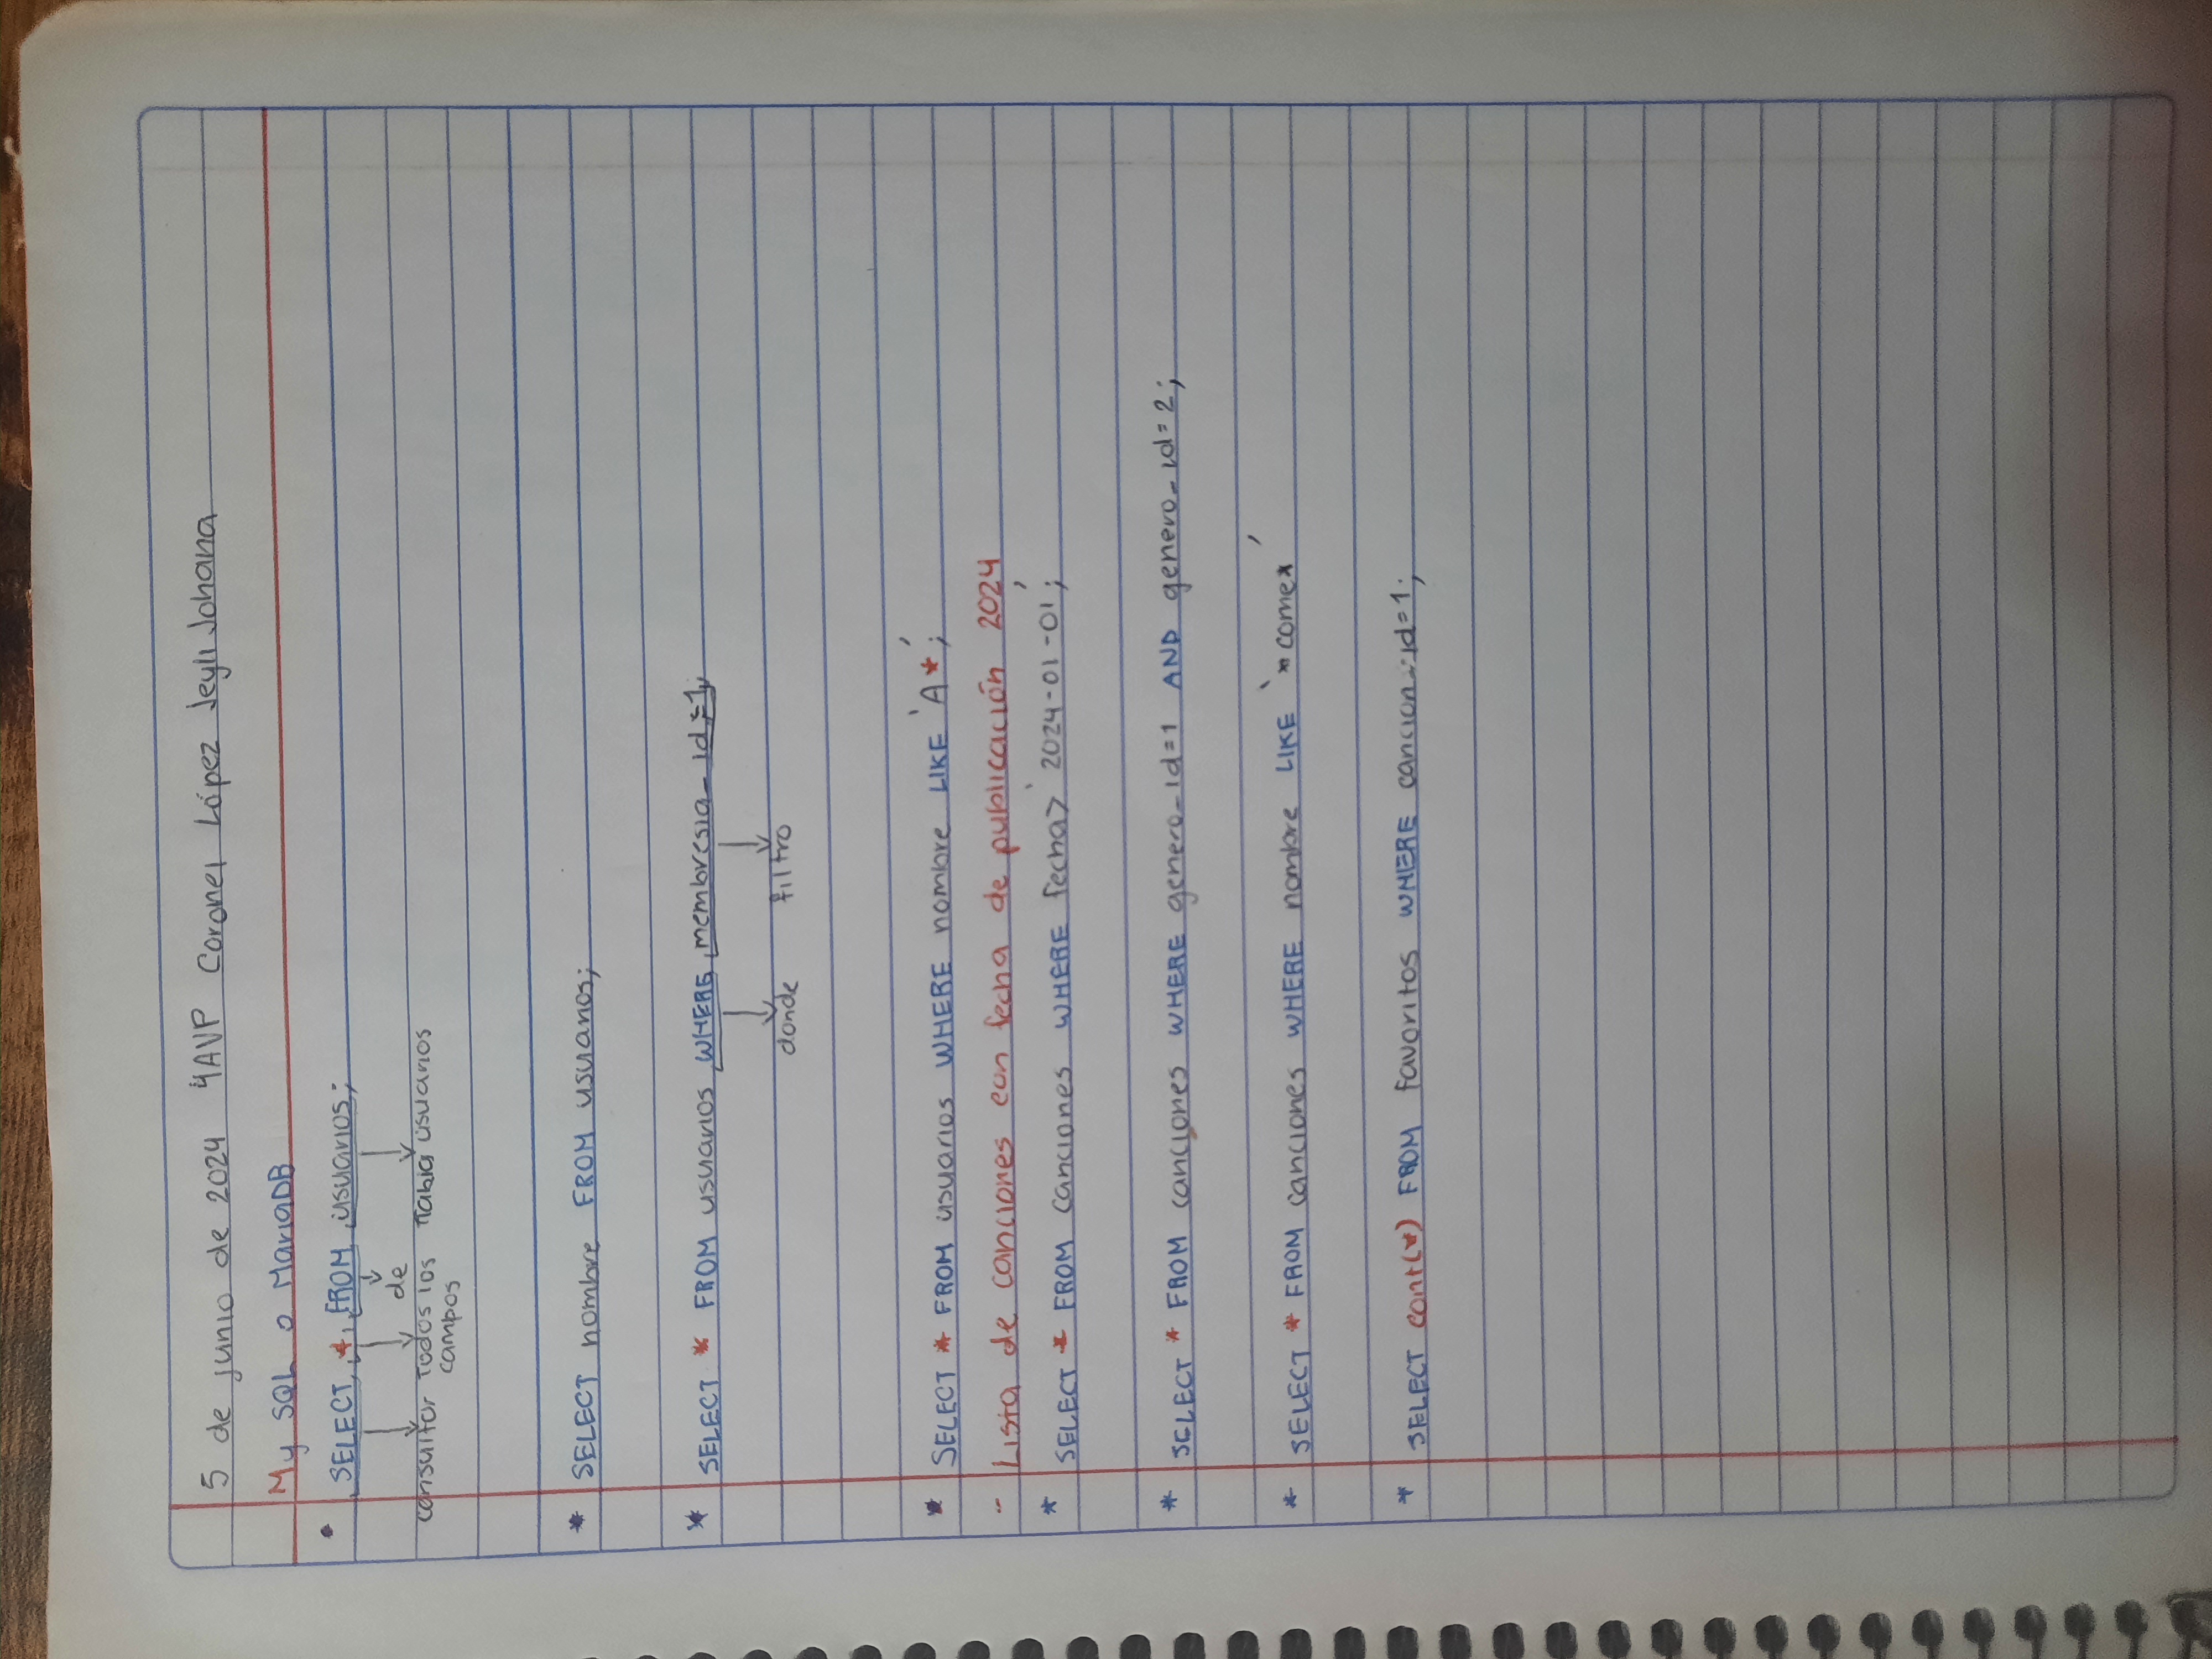 5 de junio de 2024 4AVP Coronel López Jeyli Johana
My SQL o MariaDB
• SELECT * FROM usuarios;
de
consultar Todos los Tabla usuarios
campos
* SELECT nombre FROM usuarios;
* SELECT * FROM usuarios WHERE membresia_id=1;
donde filtro
* SELECT * FROM usuarios WHERE nombre LIKE 'A*';
- Lista de canciones con fecha de publicación 2024
* SELECT * FROM canciones WHERE fecha> '2024-01-01';
* SELECT * FROM canciones WHERE genero_id=1 AND genero_id=2;
* SELECT * FROM canciones WHERE nombre LIKE '*come*'
* SELECT cont(*) FROM favoritos WHERE cancion_id=1;